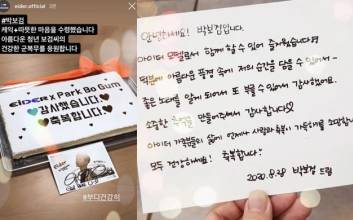 eider.official
#박보검
케익♥따뜻한 마음을 수령했습니다
아름다운 청년 보검씨의
건강한 군복무를 응원합니다
EIDER X Park Bo Gum
감사했습니다
축복합니다
#보디건강히
안녕하세요! 박보검입니다.
아이더 모델로서 함께 할 수 있어 즐거웠습니다
덕분에 아름다운 풍경 속에 저의 순간을 담을 수 있어서
좋은 노래를 알게 되어서 또 부를 수 있어서 감사했어요.
소중한 추억을 만들어주셔서 감사합니다
아이더 가족분들의 삶에 언제나 사랑과 축복이 가득하기를 소망합니다
모두 건강하세요! 축복합니다!
2020.8.28 박보검 드림